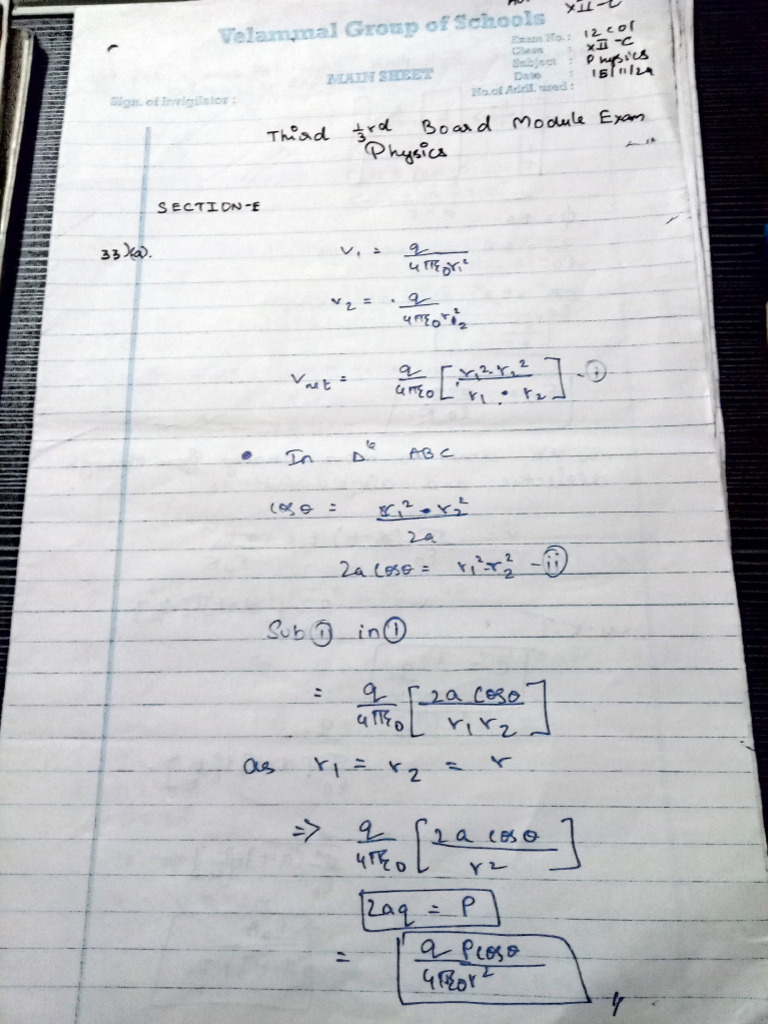 XII-C
Velammal Group of Schools
Exam No.: 12 C01
Class : XII-C
MAIN SHEET
Subject : Physics
Date : 15/11/24
Sign. of Invigilator :
No.of Addl. used :
Third 1/3rd Board Module Exam
Physics
SECTION-E
33)(a). V₁ = q / 4πε₀r₁²
V₂ = q / 4πε₀r₂²
Vnet = q/4πε₀ [r₁²-r₂² / r₁ • r₂] - ⓘ
• In Δˡᵉ ABC
cosθ = r₁² • r₂² / 2a
2a cosθ = r₁²-r₂² - ⓘⓘ
Sub ⓘ in ①
= q/4πε₀ [2a cosθ / r₁r₂]
as r₁ = r₂ = r
=> q/4πε₀ [2a cosθ / r²]
2aq = P
= q Pcosθ / 4πε₀r²